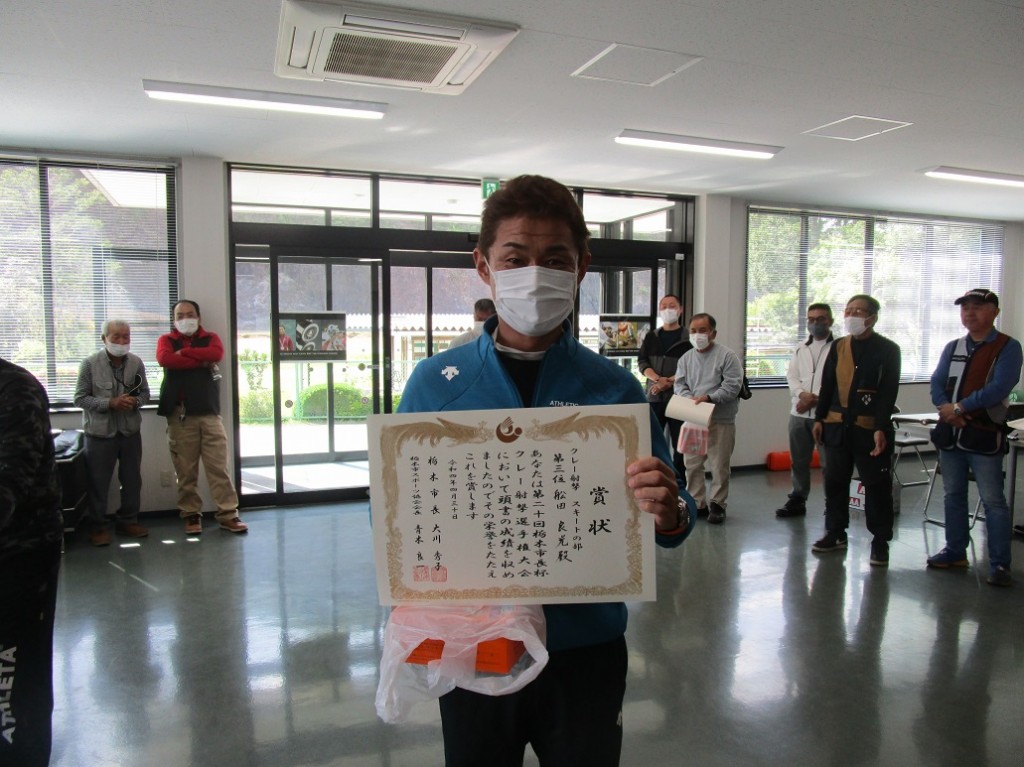 賞状
クレー射撃 スキートの部
第三位 舩田 良光殿
あなたは第二十回栃木市長杯
クレー射撃選手権大会
において頭書の成績を収め
ましたのでその栄誉をたたえ
これを賞します
令和四年四月三十日
栃木市長 大川 秀子
栃木市スポーツ協会会長 青木 良一
ATHLETA